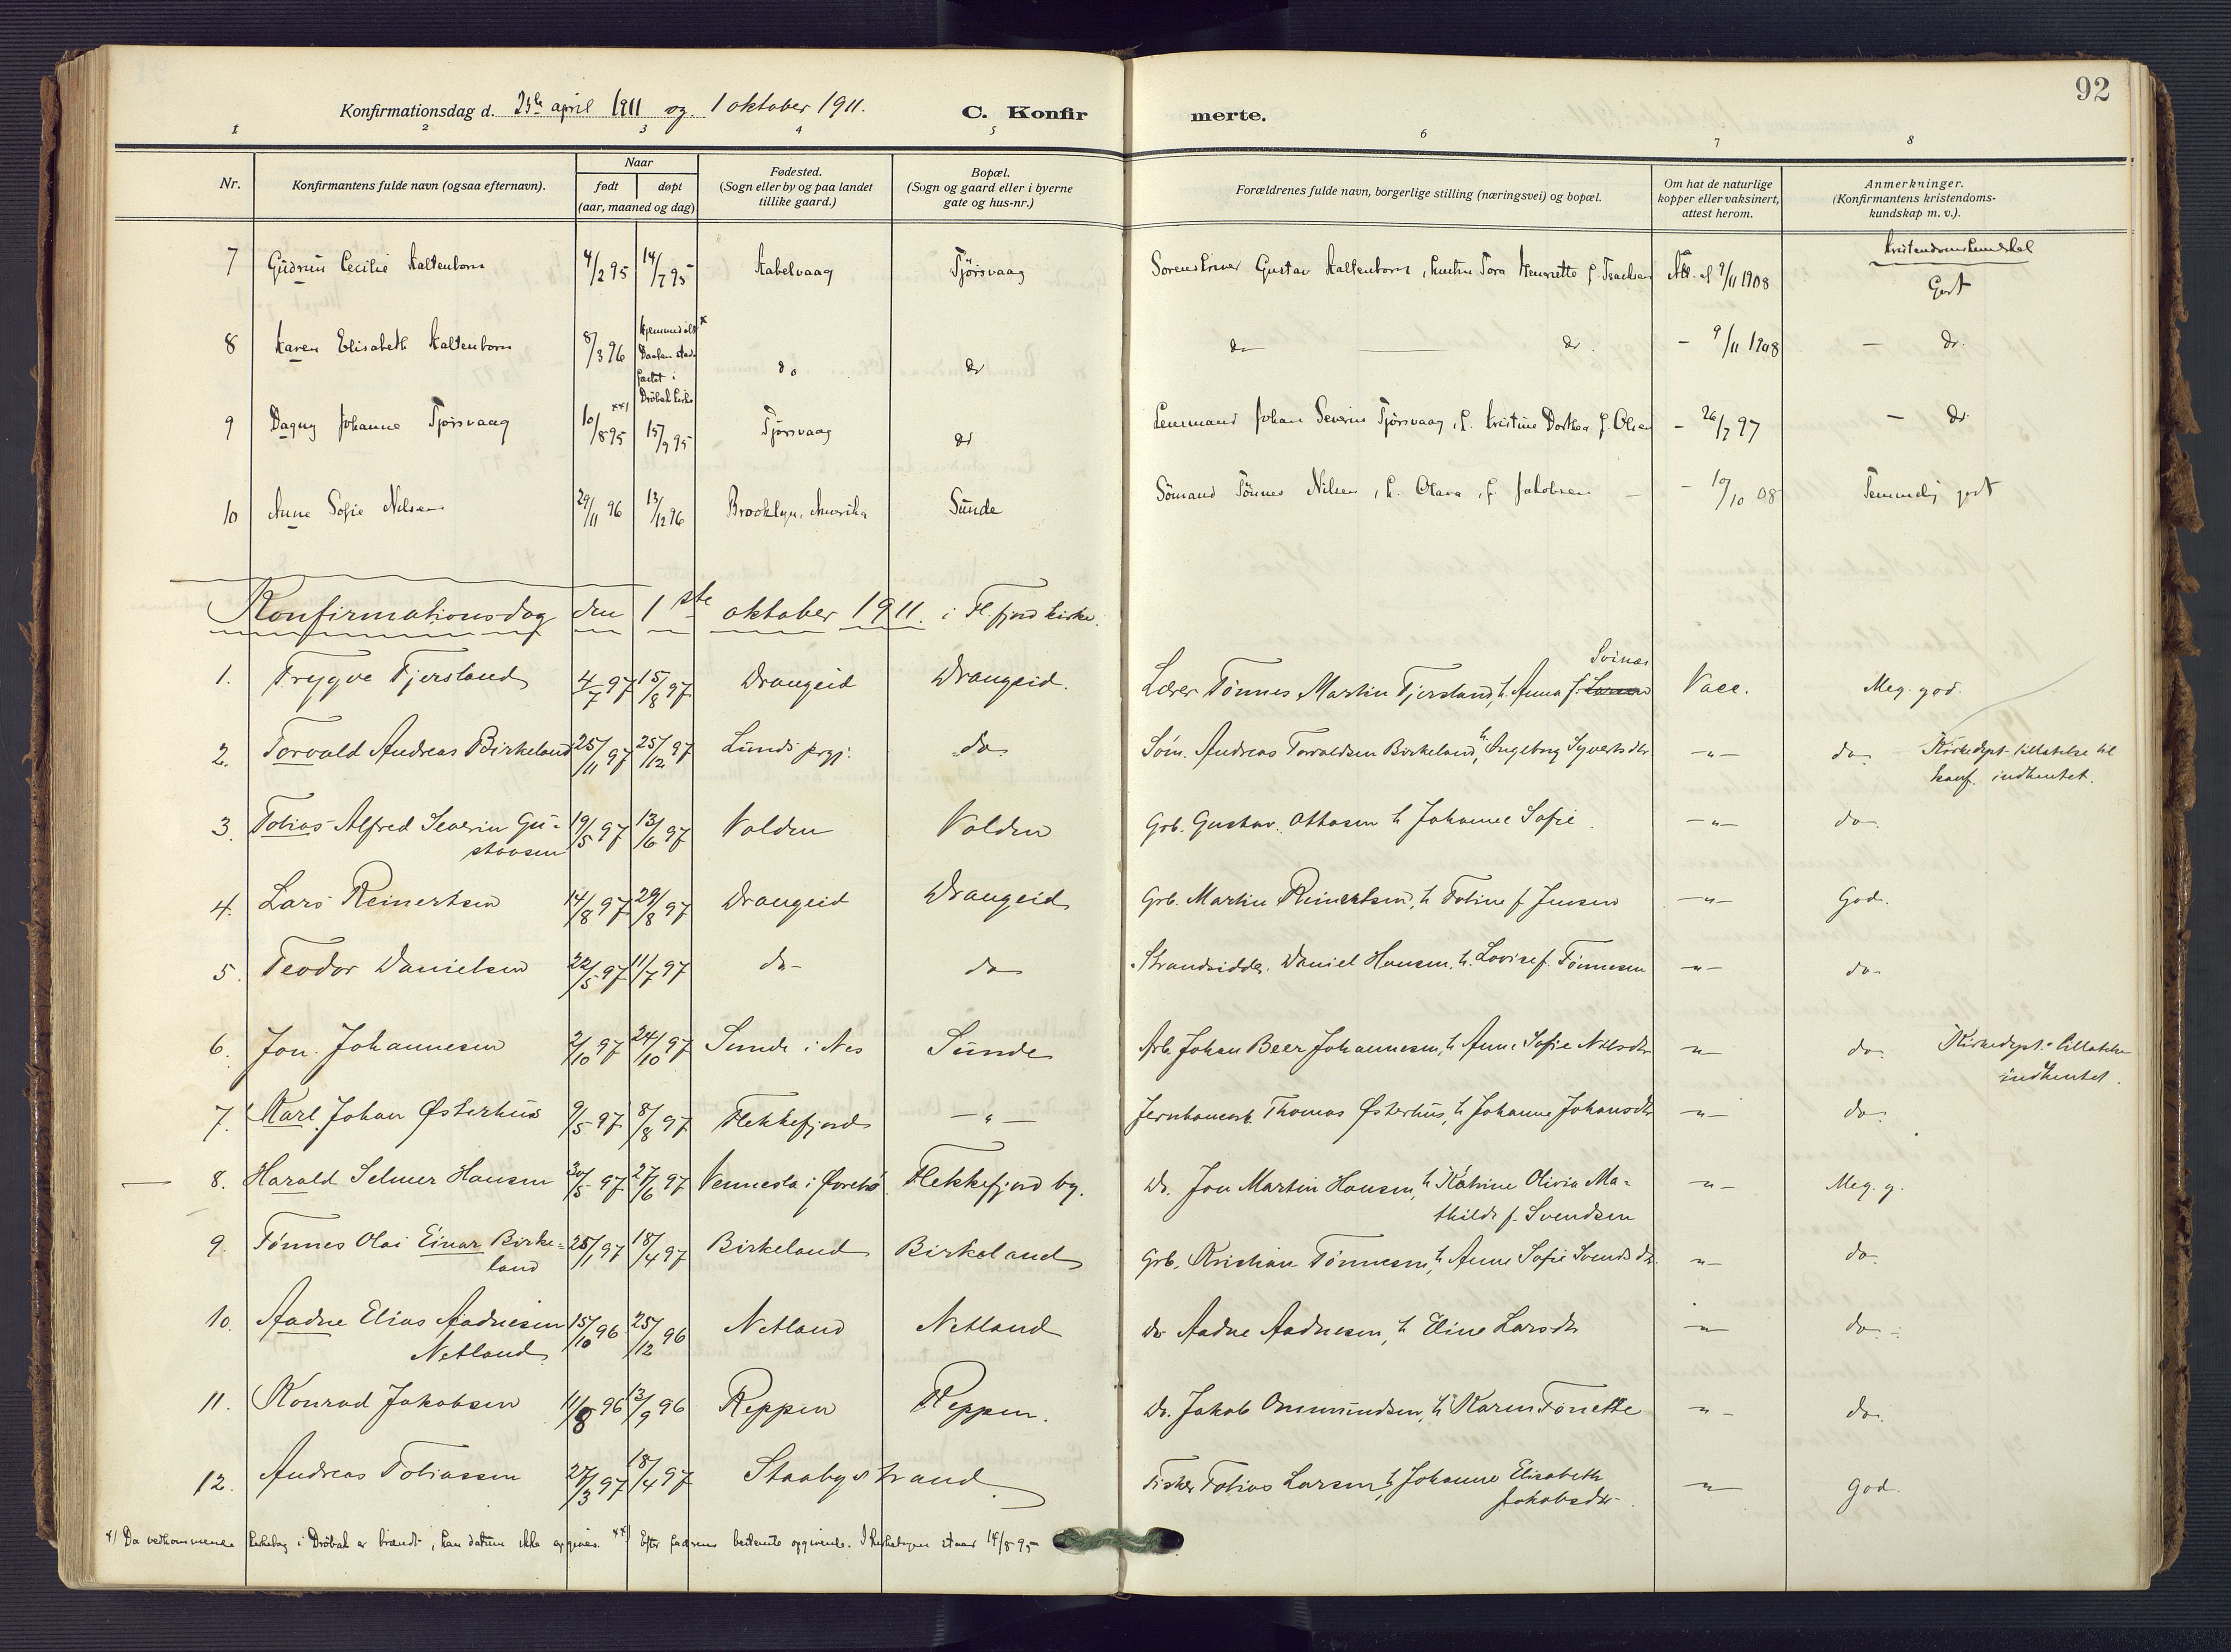 92
Konfirmationsdag d. 23de april 1911 og 1 oktober 1911.
C. Konfirmerte.
1 2 3 4 5 6 7 8
Nr.
Konfirmantens fulde navn (ogsaa efternavn).
Naar
født døpt
(aar, maaned og dag)
Fødested.
(Sogn eller by og paa landet
tillike gaard.)
Bopæl.
(Sogn og gaard eller i byerne
gate og hus-nr.)
Forældrenes fulde navn, borgerlige stilling (næringsvei) og bopæl.
Om hat de naturlige
kopper eller vaksinert,
attest herom.
Anmerkninger.
(Konfirmantens kristendoms-
kundskap m. v.).
Kristendomskundskab
7 Gudrun Cecilie Kaltenborn 4/2 95 14/7 95 Kabelvaag Tjörsvaag Sorenskriver Gustav Kaltenborn, hustru Tora Henriette f. Isachsen Att. af 9/11 1908 Godt
8 Karen Elisabeth Kaltenborn 8/3 96 Hjemmedöbt x
Daaben stad-
fæstet i
Dröbak kirke do do do do - 9/11 1908 - do.
9 Dagny Johanne Tjörsvaag 10/8 95 xx) 15/9 95 Tjörsvaag do Lensmand Johan Severin Tjörsvaag, h. Kristine Dorthea f. Olsen - 26/7 97 - do.
10 Anne Sofie Nilsen 29/11 96 13/12 96 Brooklyn, Amerika Sunde Sömand Tönnes Nilsen, h. Olava, f. Jakobsen - 19/10 08 Temmelig godt
Konfirmationsdag den 1ste oktober 1911. i Fl. fjord kirke.
1. Trygve Tjersland 4/7 97 15/8 97 Drangeid Drangeid. Lærer Tönnes Martin Tjersland, h. Anna f. Svinas Vacc. Meg. god.
2. Torvald Andreas Birkeland 25/11 97 25/12 97 Lunds prgj. do. Söm. Andreas Torvaldsen Birkeland, h. Ingeborg Syvertsdtr -"- do. Kirkedept. tillatelse til
konf. indhentet.
3. Tobias Alfred Severin Gu-
stavsen 19/5 97 13/6 97 Volden Volden Grb. Gustav Ottosen h Johanne Sofie -"- do.
4. Lars Reinertsen 14/8 97 29/8 97 Drangeid Drangeid Grb. Martin Reinertsen, h Tobine f Jensen -"- God.
5. Teodor Danielsen 22/5 97 11/7 97 do- do Strandsidder. Daniel Hansen, h. Lovise f. Tönnesen -"- do-
6. Jon Johannesen 2/10 97 24/10 97 Sunde i Nes Sunde Arb. Johan Beer Johannesen, h Anne Sofie Nilsdtr -"- do. Kirkedept. tillatelse
indhentet.
7. Karl Johan Østerhus 9/5 97 8/8 97 Flekkefjord -"- Jernbanearb. Thomas Østerhus, h Johanne Johansdtr -"- do.
8. Harald Selmer Hansen 30/5 97 27/6 97 Vennesla i Øvrebø Flekkefjord by. Do. Jon Martin Hansen, h Katrine Olivia Ma-
thilde f. Svendsen -"- Meg. g.
9. Tönnes Olai Einar Birke-
land 25/1 97 18/4 97 Birkeland Birkeland Grb. Kristian Tönnesen, h Anne Sofie Svendsdtr. -"- do-
10. Aadne Elias Aadnesen
Netland 15/10 96 25/12 96 Netland Netland Do Aadne Aadnesen, h Eline Larsdtr -"- do.
11. Konrad Jakobsen 11/8 96 13/9 96 Reppen Reppen. Do. Jakob Ommundsen, h Karen Tonette -"- do.
12. Andreas Tobiassen 27/3 97 18/4 97 Staabystrand Fisker Tobias Larsen, h Johanne Elisabeth
Jakobsdtr. -"- God.
x) Da vedkommende kirkebog i Dröbak er brændt, kan datum ikke opgives. xx) Efter faderens bestemte opgivende. I kirkebogen staar 14/8 95